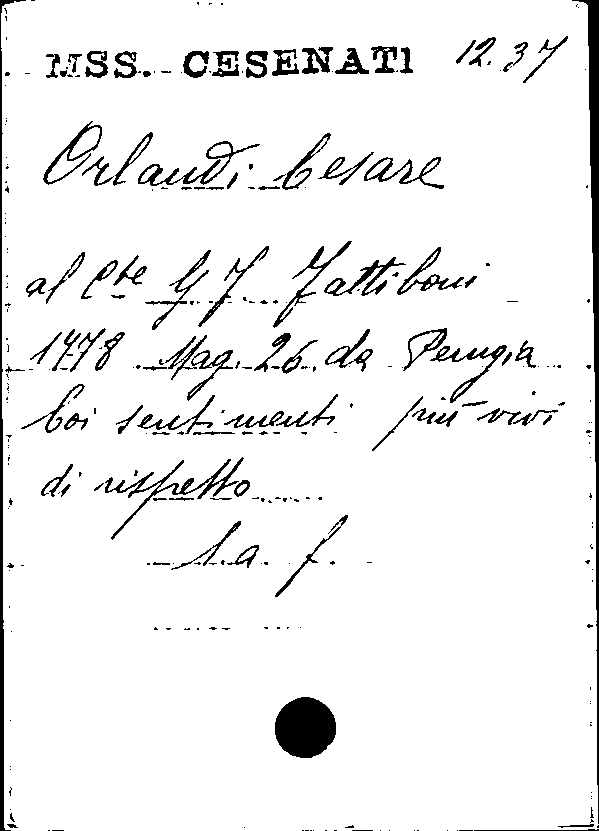 MSS. CESENATI 12.37
Orlandi Cesare
al Cte G F Fattiboni
1778 Mag. 26. da Perugia
Coi sentimenti più vivi
di rispetto
l.a. f.